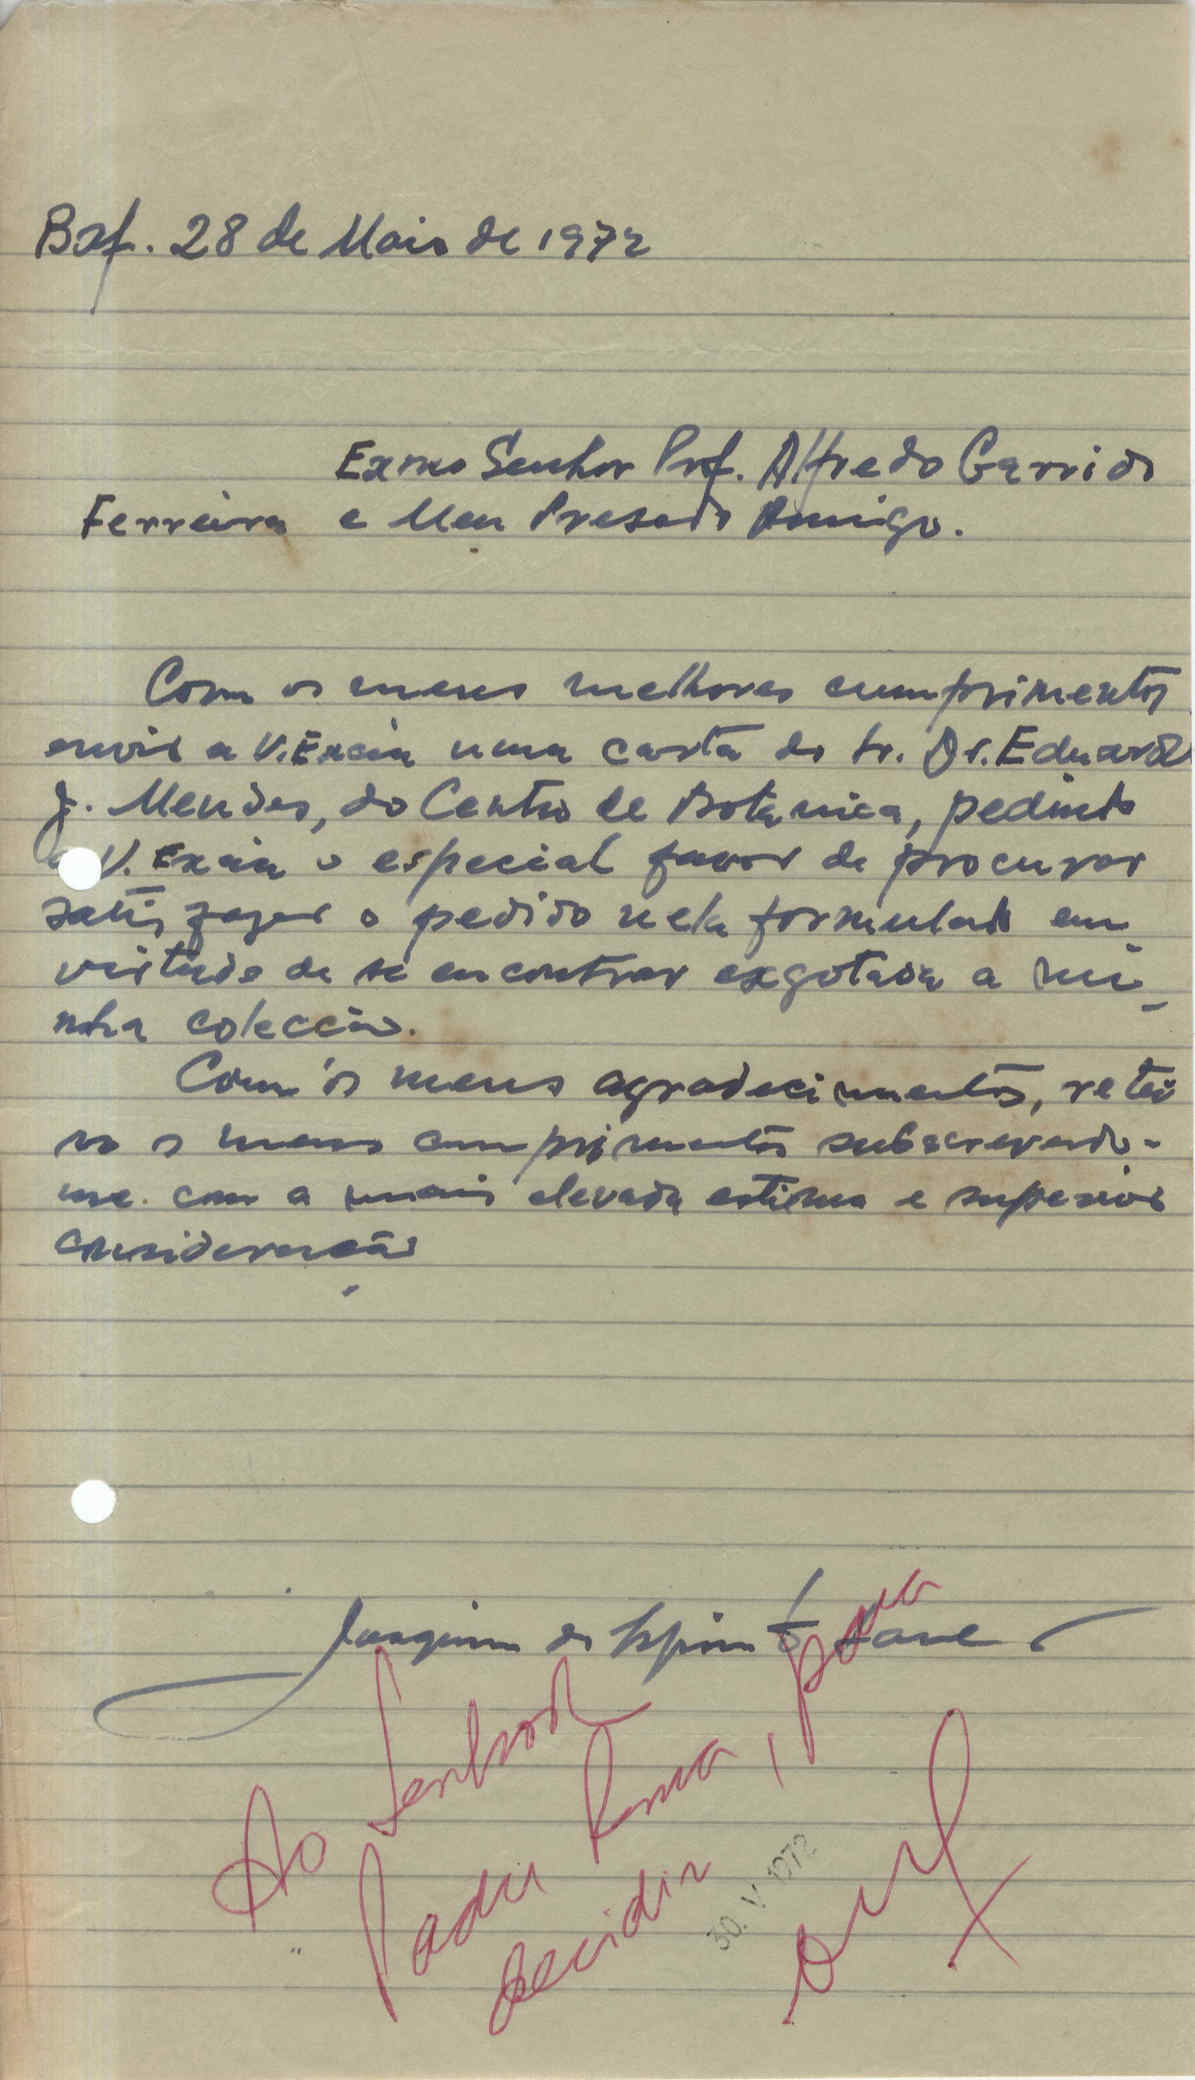 Baf. 28 de Maio de 1972
Exmo Senhor Prof. Alfredo Garrido
Ferreira e Meu Presado Amigo.
Com os meus melhores cumprimentos
envio a V. Excia uma carta do Sr. Dr. Eduardo
J. Mendes, do Centro de Botanica, pedindo
a V. Excia o especial favor de procurar
satisfazer o pedido nela formulado em
virtude de se encontrar exgotada a mi-
nha colecção.
Com os meus agradecimentos, retei
ro os meus cumprimentos subscrevendo-
me com a mais elevada estima e superior
consideração
Joaquim do Espirito
Ao Senhor
Padre Roma, para
decidir
30. V 1972